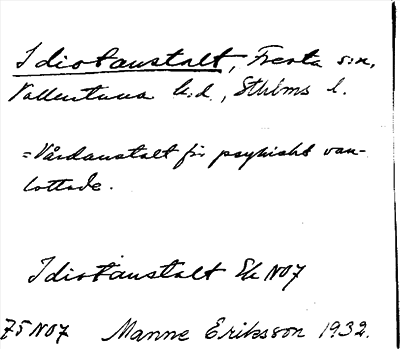 Idiotanstalt, Fresta s:n,
Vallentuna h:d., Sthlms l.
= Vårdanstalt för psykiskt van-
lottade.
Idiotanstalt Ek NO7
75 NO7 Manne Eriksson 1932.